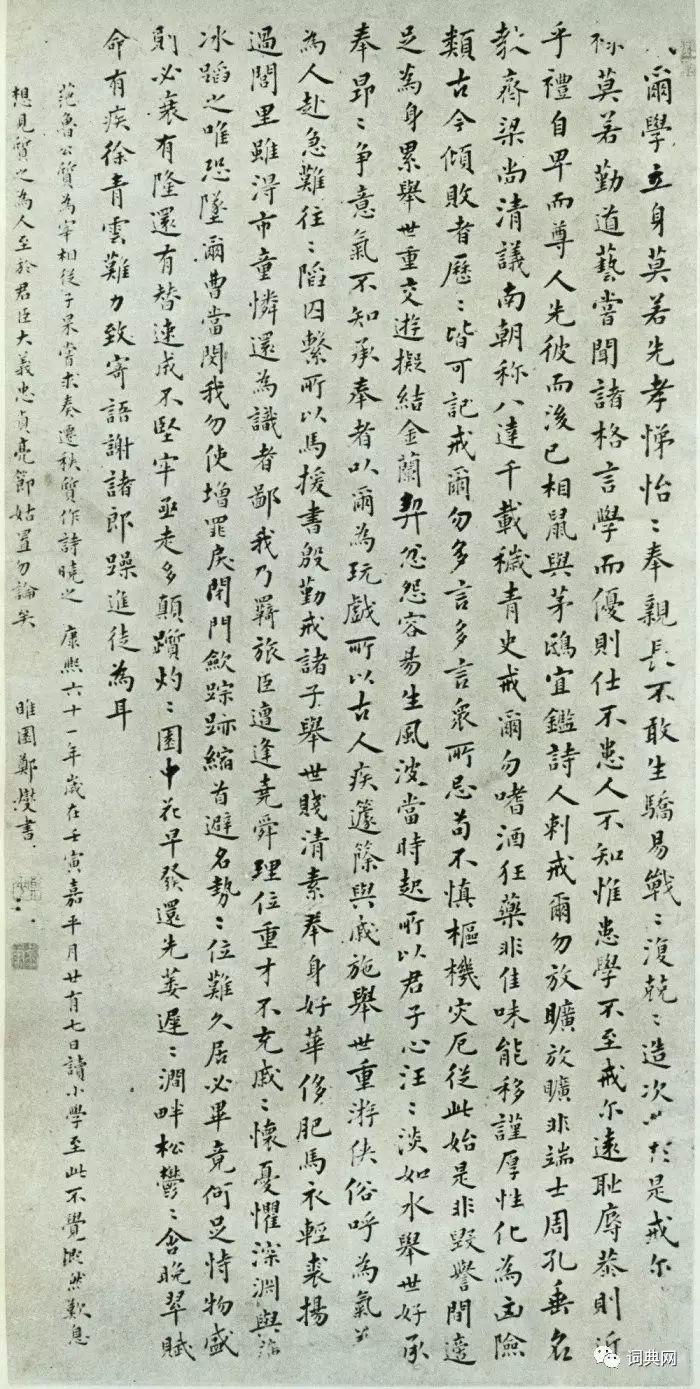 爾學立身莫若先孝悌怡〻奉親長不敢生驕易戰〻復兢〻造次必於是戒尔
祿莫若勤道藝嘗聞諸格言學而優則仕不患人不知惟患學不至戒尔遠恥辱恭則近
乎禮自卑而尊人先彼而後己相鼠與茅鴟宜鑑詩人刺戒爾勿放曠放曠非端士周孔垂名
教齊梁尚清議南朝称八達千載穢青史戒爾勿嗜酒狂藥非佳味能移謹厚性化為凶險
類古今傾敗者歷〻皆可記戒爾勿多言多言衆所忌苟不慎樞機灾厄從此始是非毀譽間適
足為身累舉世重交遊擬結金蘭契忿怨容易生風波當時起所以君子心汪〻淡如水舉世好承
奉昂〻爭意氣不知承奉者以爾為玩戲所以古人疾籧篨與戚施舉世重游俠俗呼為氣
為人赴急難往〻陷囚繫所以馬援書殷勤戒諸子舉世賤清素奉身好華侈肥馬衣輕裘揚
過閭里雖得市童憐還為識者鄙我乃羇旅臣遭逢堯舜理位重才不充戚〻懷憂懼深淵與
冰蹈之唯恐墜爾曹當閔我勿使增罪戾閉門歛踪跡縮首避名勢〻位難久居必畢竟何足恃物盛
則必衰有隆還有替速成不堅牢亟走多顛躓灼〻園中花早發還先萎遲〻澗畔松鬱〻含晚翠賦
命有疾徐青雲難力致寄語謝諸郎躁進徒為耳
范魯公質為宰相從子杲嘗求奏遷秩質作詩曉之 康熙六十一年歲在壬寅嘉平月廿有七日讀小學至此不覺慨然歎息
想見質之為人至於君臣大義忠貞亮節姑置勿論矣 睢園鄭燮書
词典网